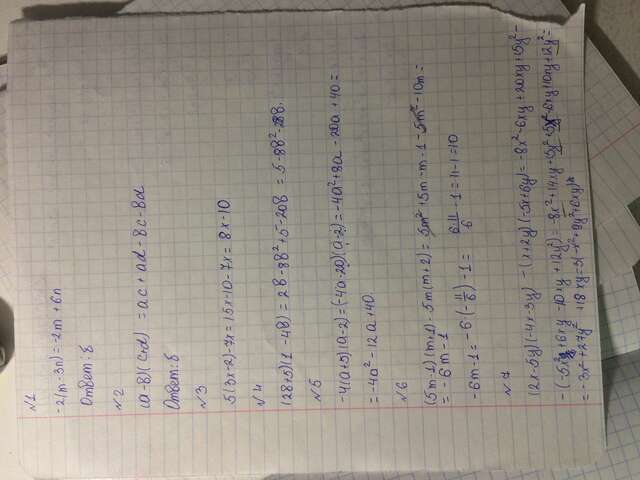 №1
-2(m-3n)=-2m+6n
Ответ: б
№2
(a-b)(c+d) =ac+ad-bc-bd
Ответ: б
№3
5(3x-2)-7x=15x-10-7x=8x-10
№4
(2b+5)(1-4b)=2b-8b²+5-20b=5-8b²-18b.
№5
-4(a+5)(a-2)=(-4a-20)(a-2)=-4a²+8a-20a+40=
=-4a²-12a+40.
№6
(5m-1)(m+1)-5m(m+2)=5m²+5m-m-1-5m²-10m=
=-6m-1
-6m-1=-6(-11/6)-1= 6·11/6-1=11-1=10
№7
(2x-5y)(-4x-3y)-(x+2y)(-5x+6y)=-8x²-6xy+20xy+15y²-
-(-5x²+6xy-10xy+12y²)=-8x²+14xy+15y²+5x²-6xy+10xy+12y²=
=-3x²+27y²+18xy=3(-x²+9y²+6xy)